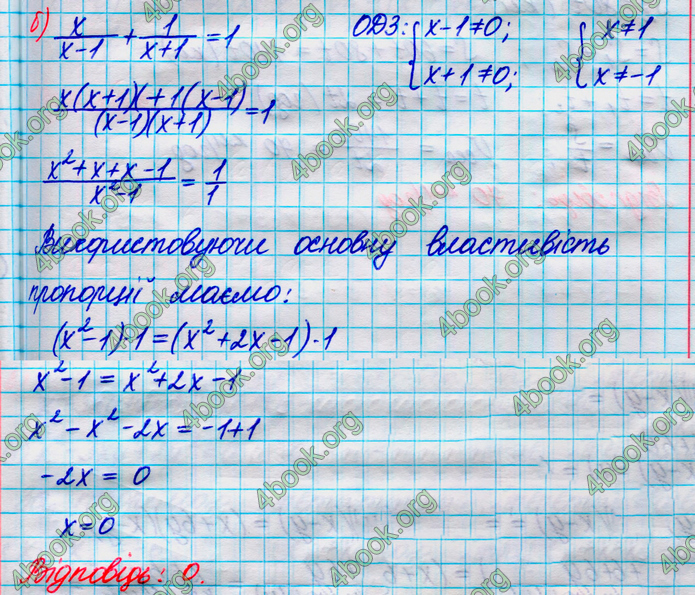 б) x/(x-1) + 1/(x+1) = 1 ОДЗ: { x-1≠0; x+1≠0; { x≠1 x≠-1
(x(x+1)+1(x-1))/((x-1)(x+1)) = 1
(x²+x+x-1)/(x²-1) = 1/1
Використовуючи основну властивість
пропорції маємо:
(x²-1)·1=(x²+2x-1)·1
x²-1 = x²+2x-1
x²-x²-2x = -1+1
-2x = 0
x=0
Відповідь: 0.
4book.org